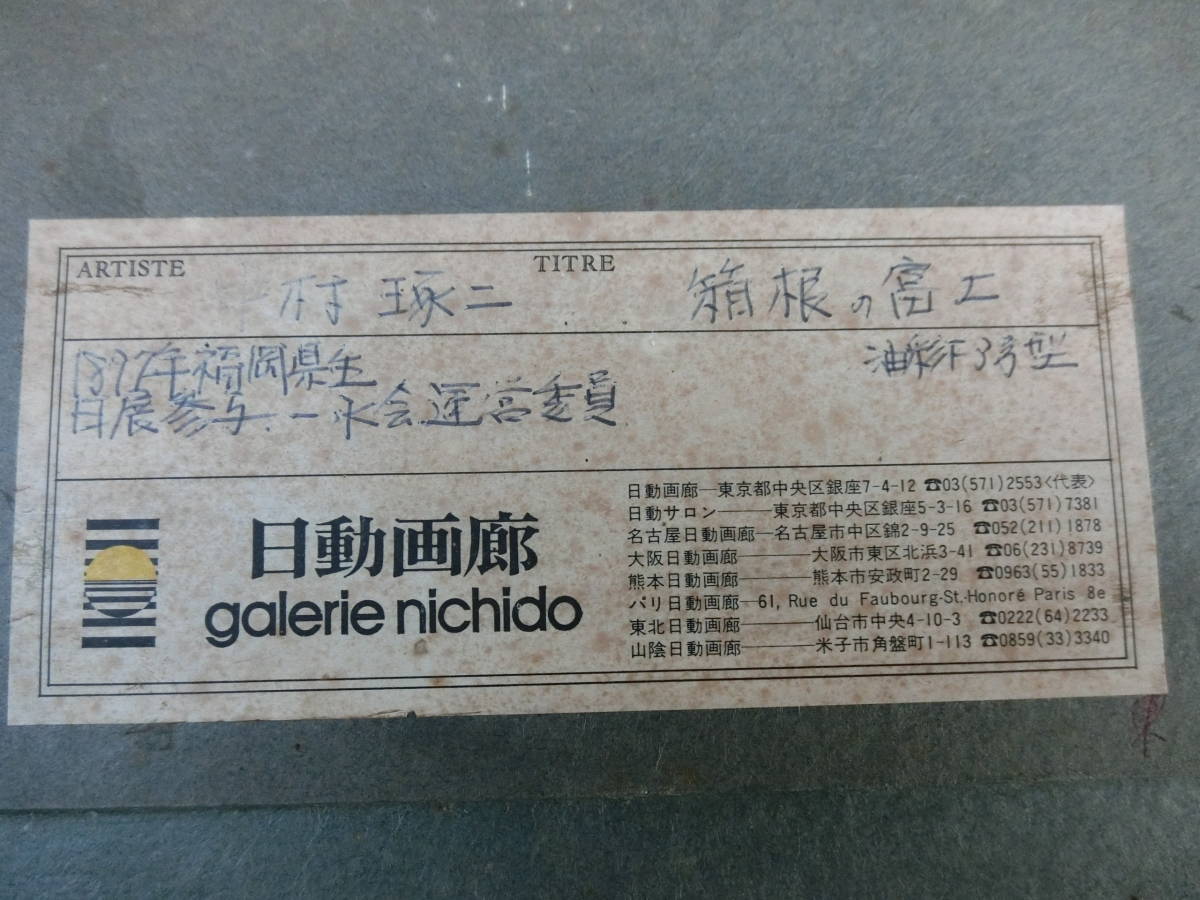 ARTISTE
TITRE
村 琢二
箱根の富士
1897年福岡県生
油彩F3号型
日展参与 一水会運営委員
日動画廊
galerie nichido
日動画廊―東京都中央区銀座7-4-12 ☎03(571)2553<代表>
日動サロン―――東京都中央区銀座5-3-16 ☎03(571)7381
名古屋日動画廊―名古屋市中区錦2-9-25 ☎052(211)1878
大阪日動画廊――――大阪市東区北浜3-41 ☎06(231)8739
熊本日動画廊――――熊本市安政町2-29 ☎0963(55)1833
パリ日動画廊―61, Rue du Faubourg-St.-Honoré Paris 8e
東北日動画廊――――仙台市中央4-10-3 ☎0222(64)2233
山陰日動画廊――――米子市角盤町1-113 ☎0859(33)3340